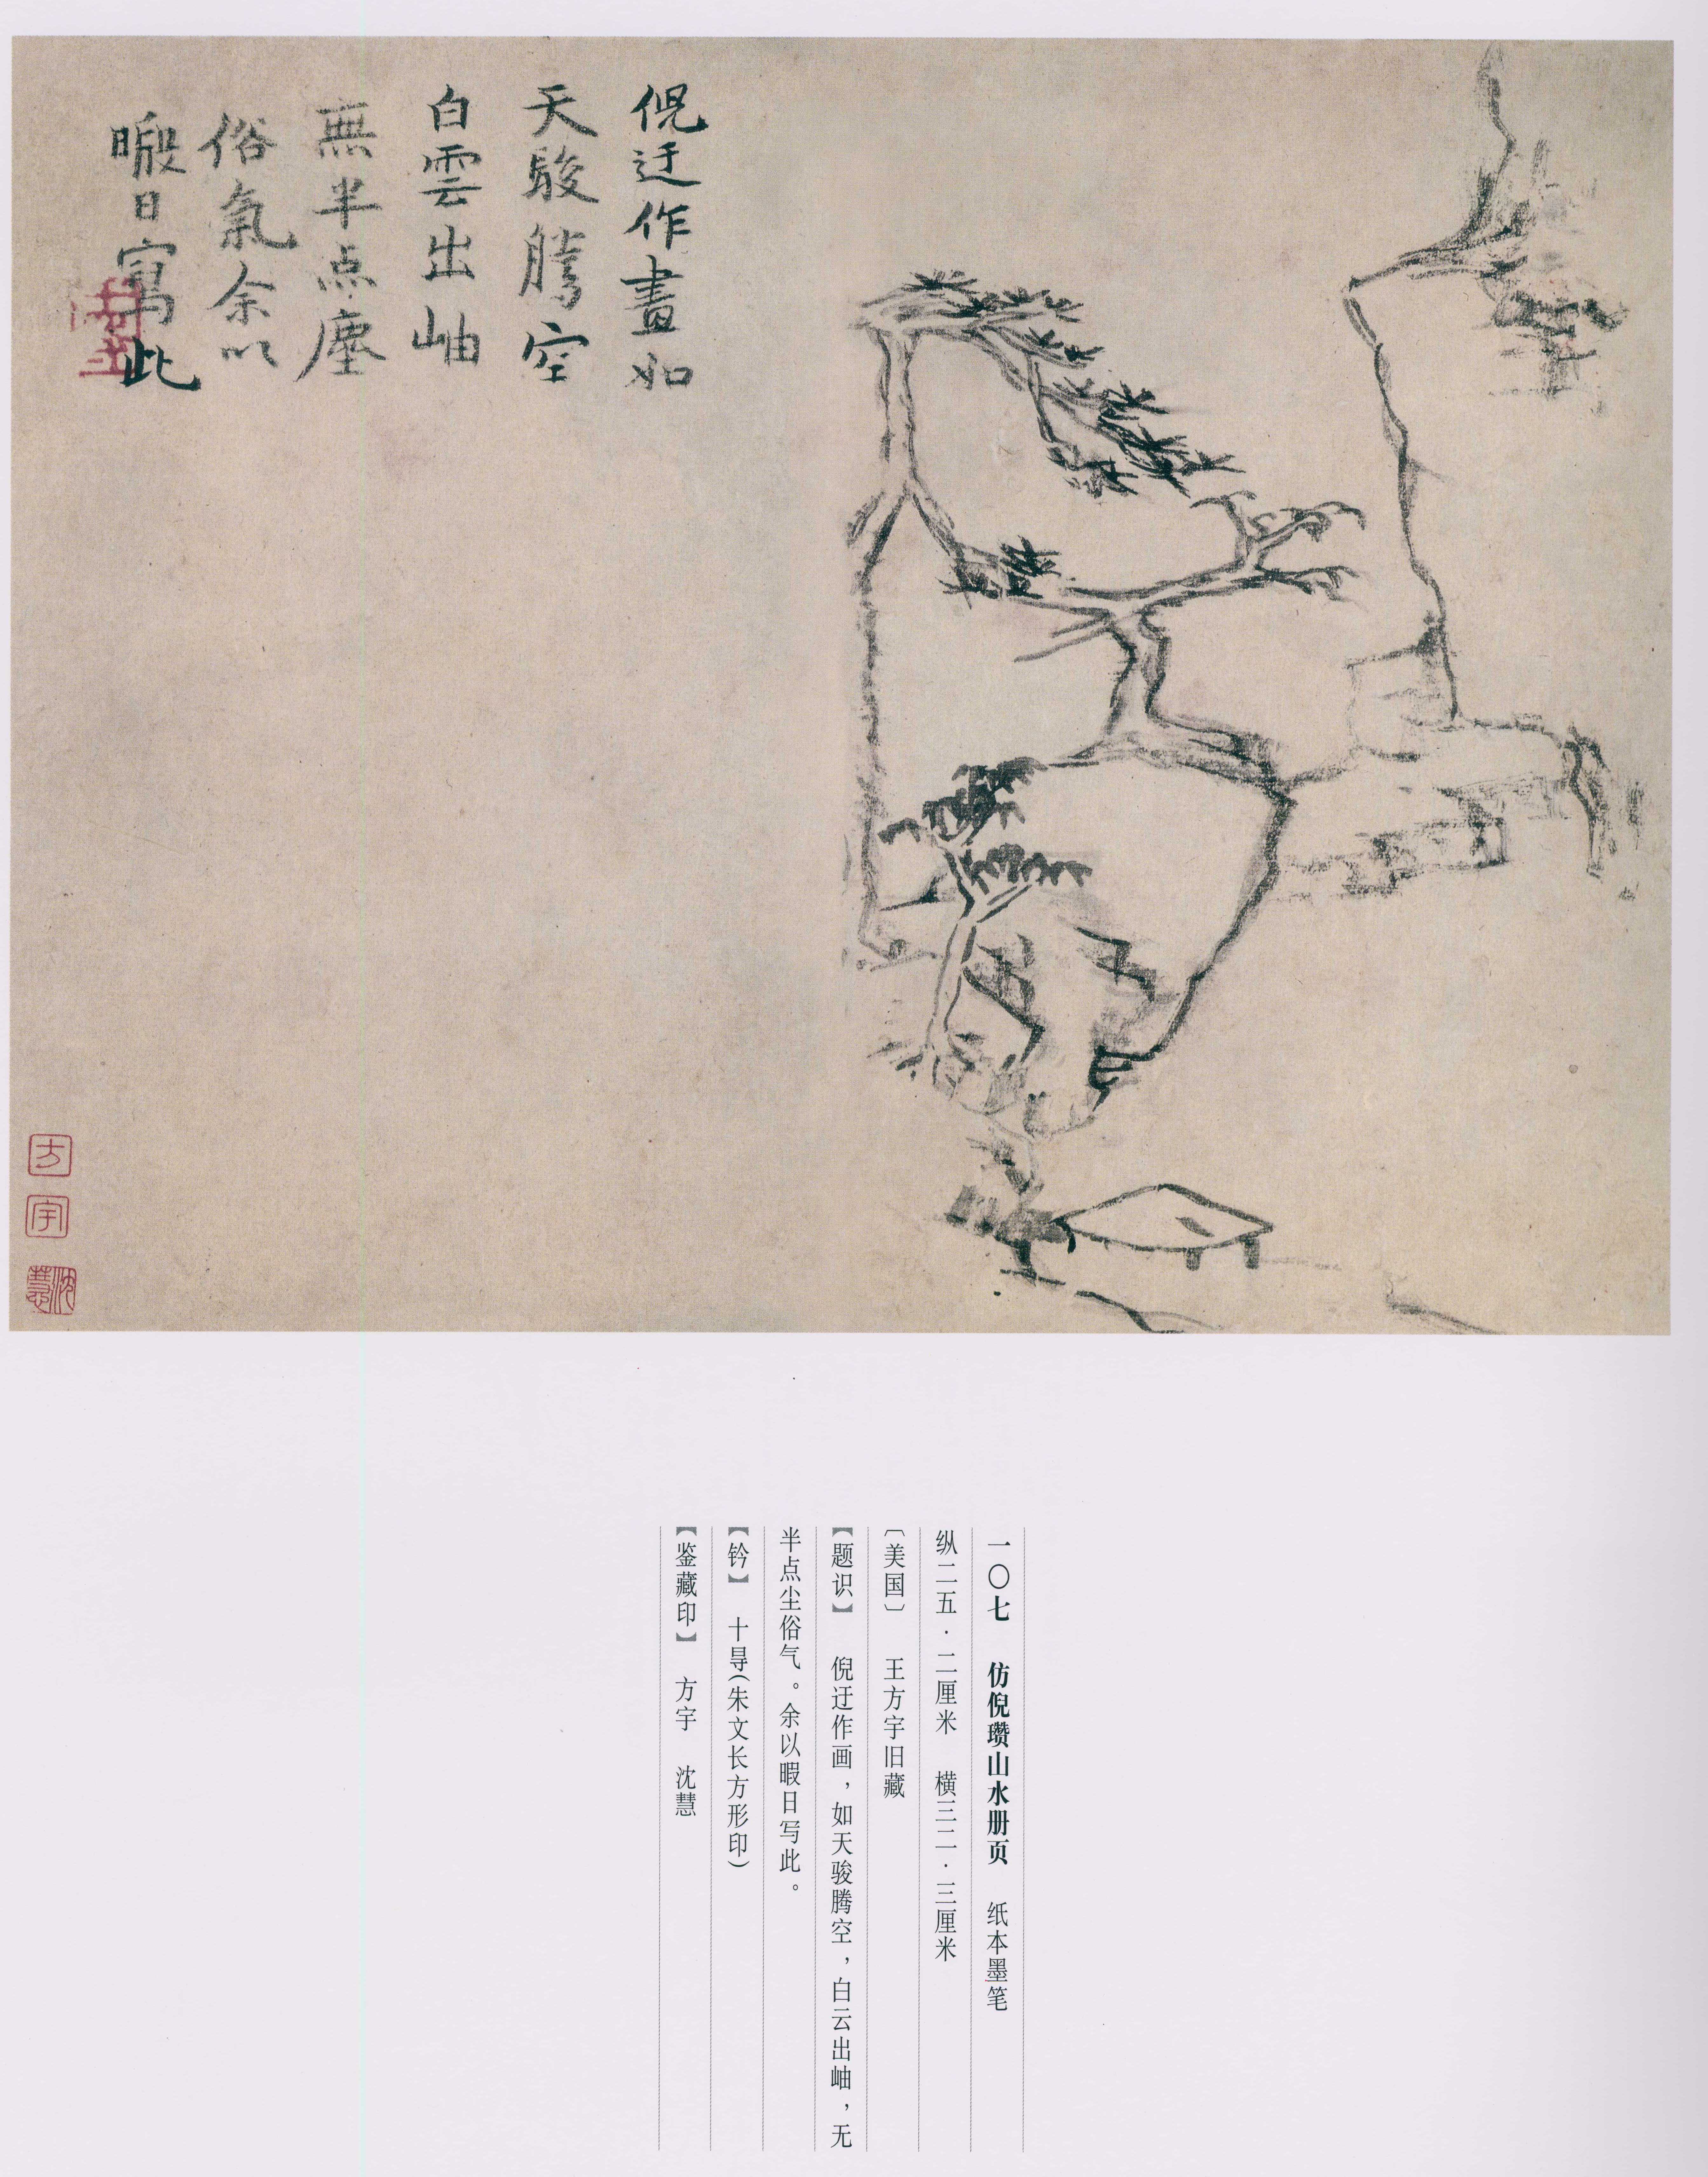 倪迂作畫如
天駿騰空
白雲出岫
無半点塵
俗氣余以
暇日寫此
方
宇
沈慧
一〇七 仿倪瓒山水册页 纸本墨笔
纵二五·二厘米 横三二·三厘米
〔美国〕 王方宇旧藏
【题识】 倪迂作画，如天骏腾空，白云出岫，无
半点尘俗气。余以暇日写此。
【钤】 十㝵(朱文长方形印)
【鉴藏印】 方宇 沈慧